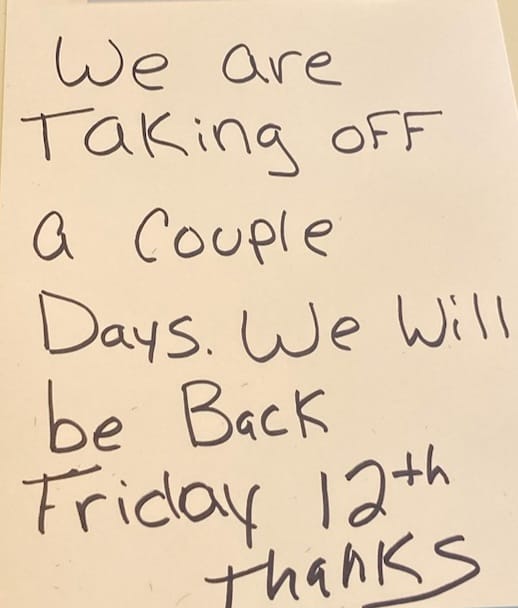 We are
Taking OFF
a Couple
Days. We Will
be Back
Friday 12th
thanks